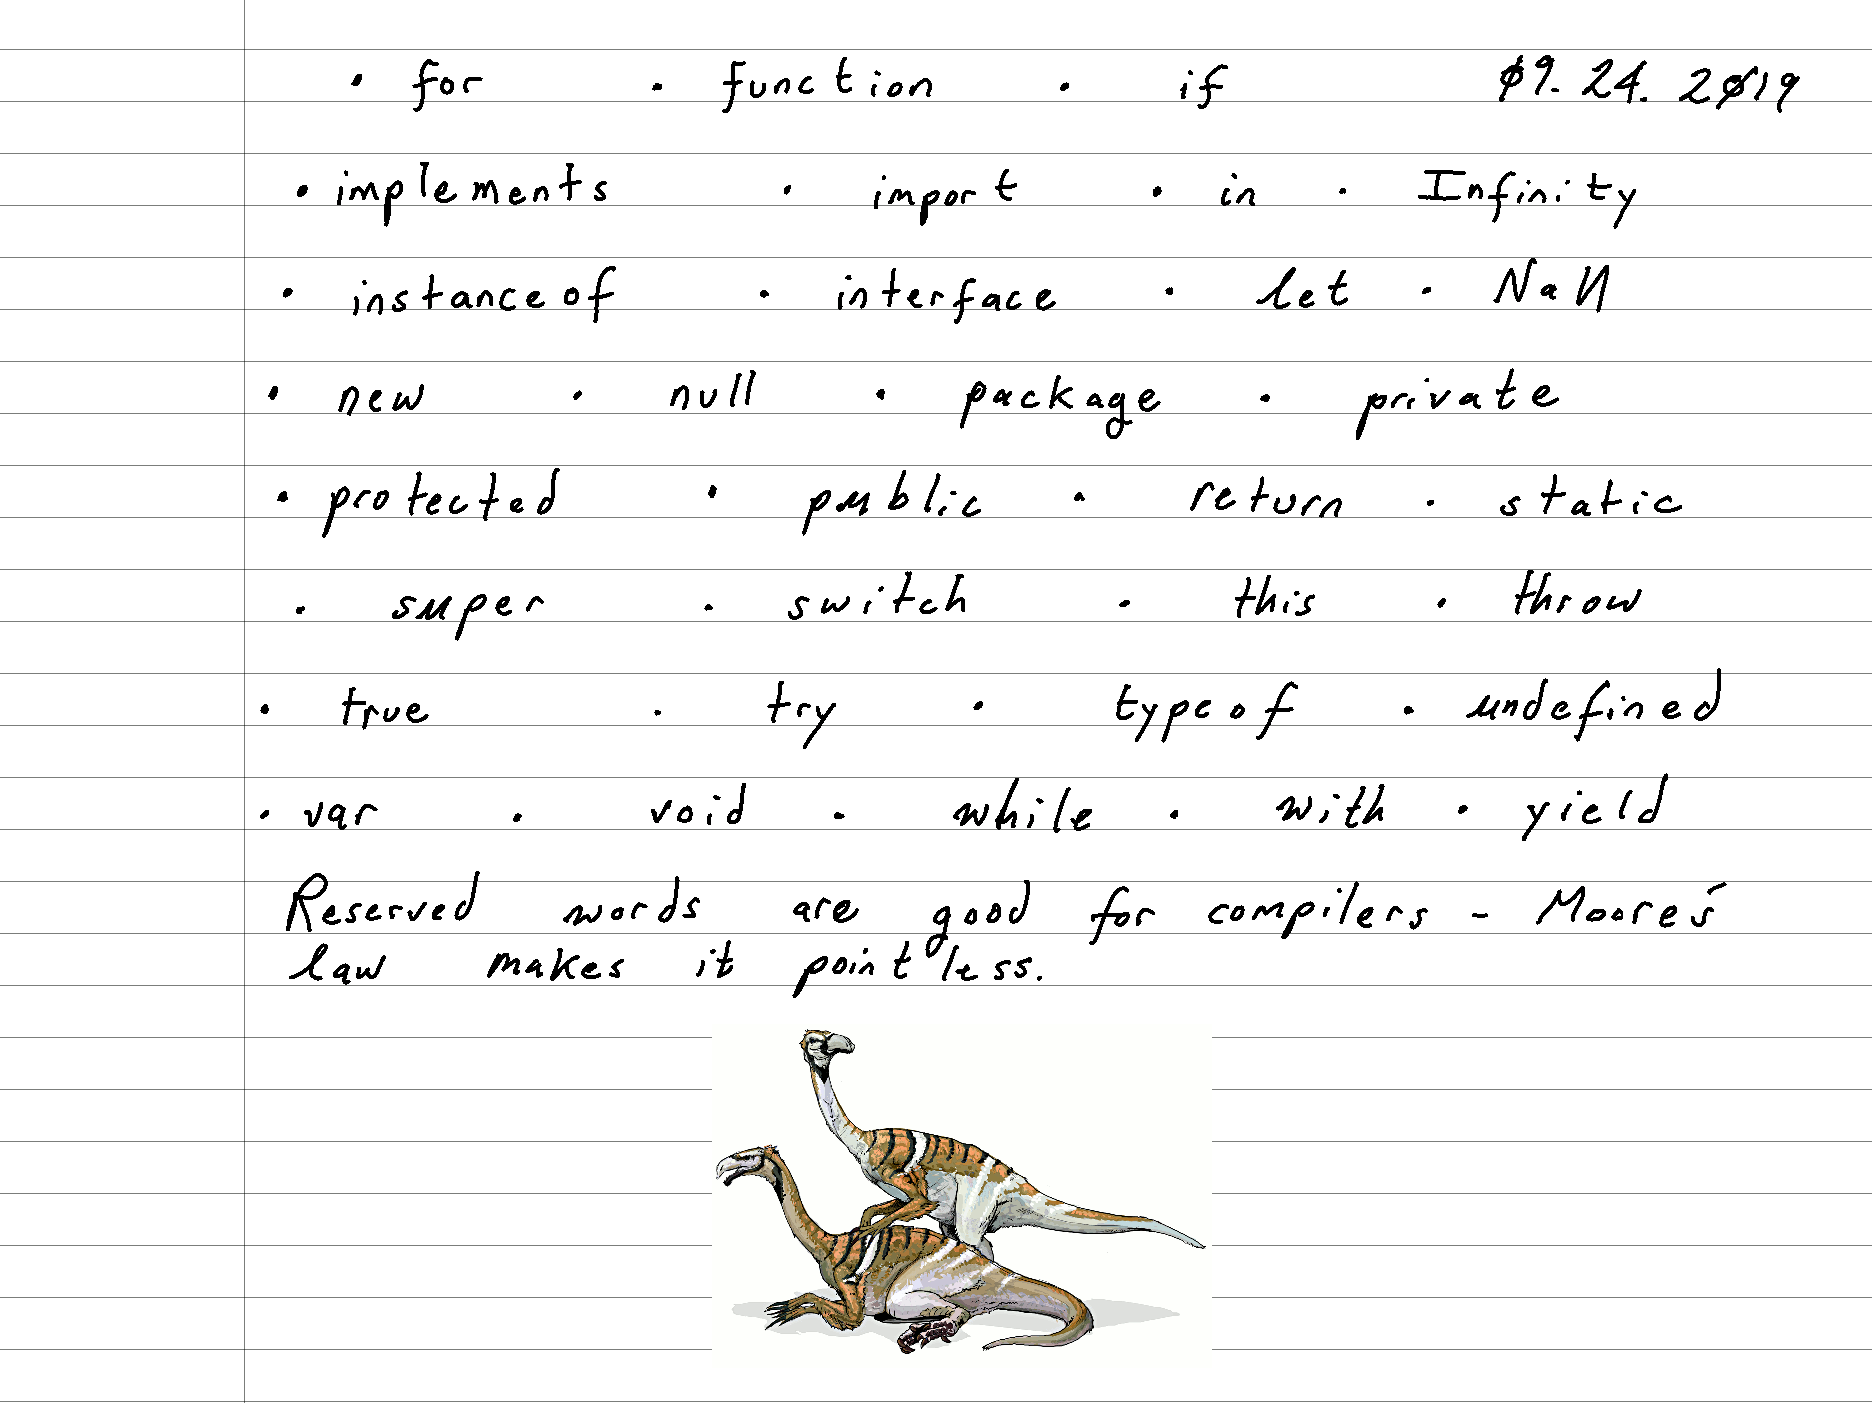 • for • function • if 09. 24. 2019
• implements • import • in • Infinity
• instanceof • interface • let • NaN
• new • null • package • private
• protected • public • return • static
• super • switch • this • throw
• true • try • typeof • undefined
• var • void • while • with • yield
Reserved words are good for compilers - Moore's
law makes it pointless.